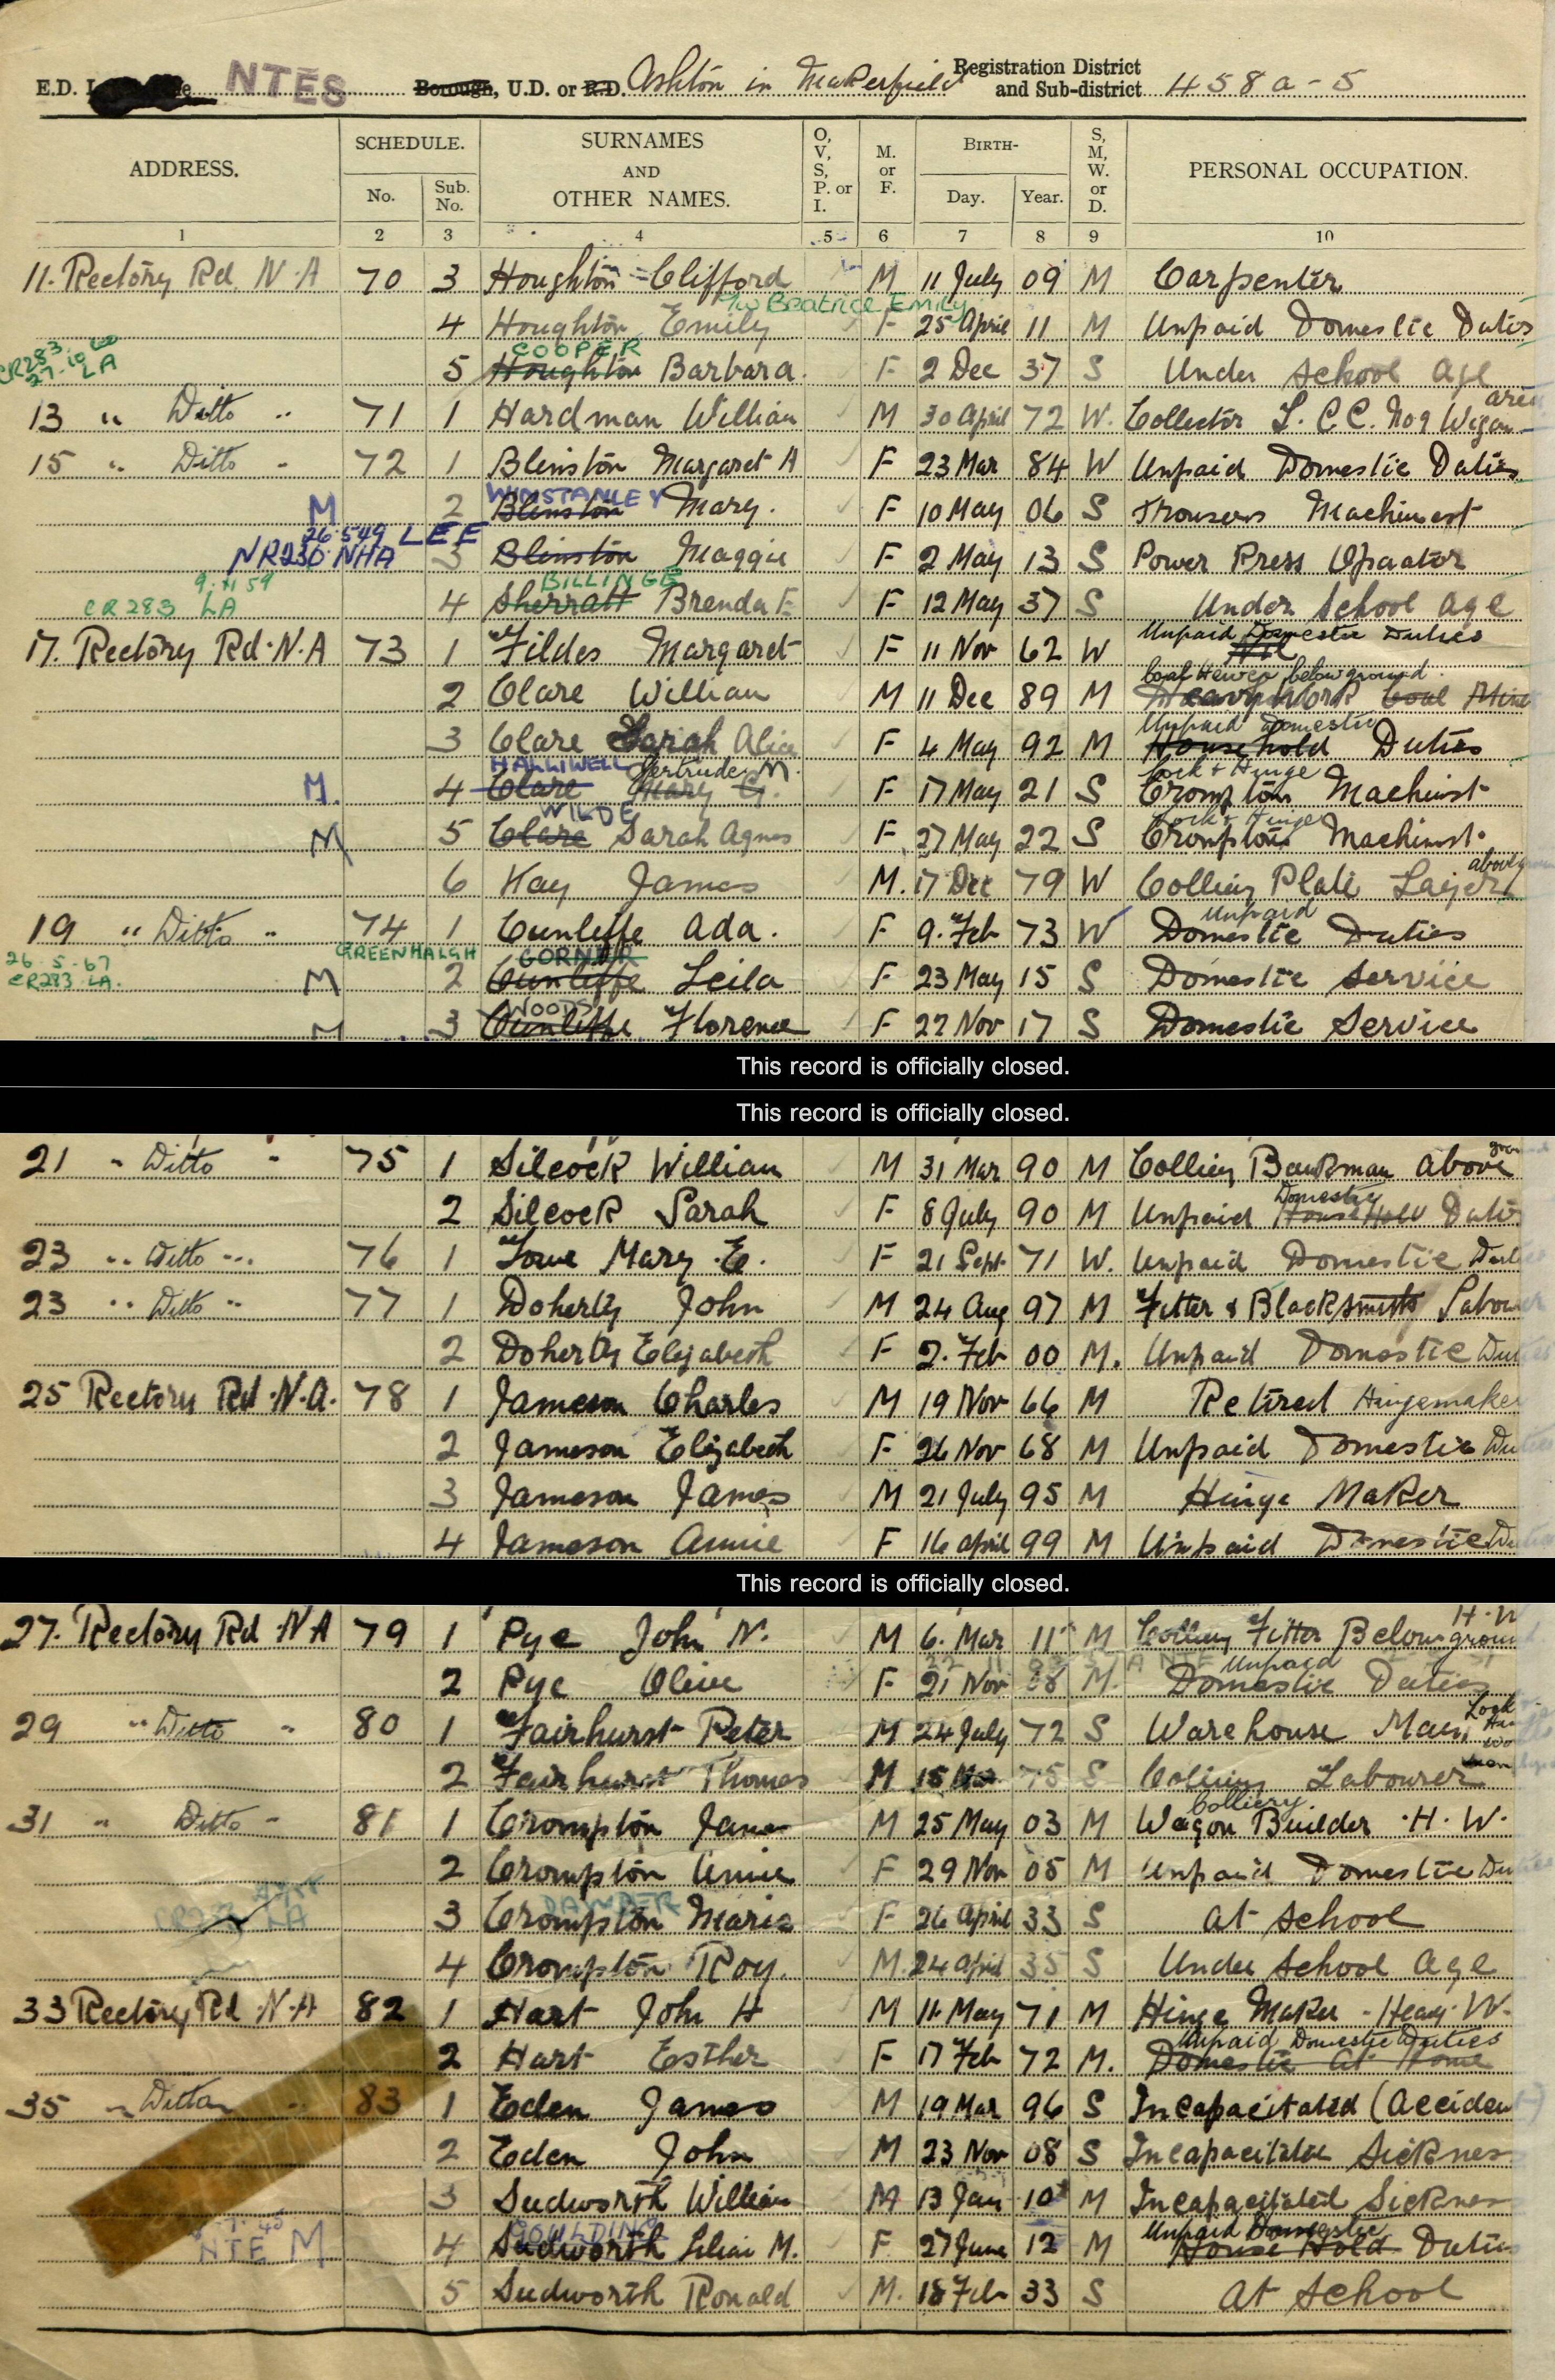 E.D. NTES Borough, U.D. or R.D. Ashton in Makerfield Registration District and Sub-district 458a-5
ADDRESS. SCHEDULE. No. Sub. No. SURNAMES AND OTHER NAMES. O, V, S, P. or I. M. or F. BIRTH- Day. Year. S, M, W. or D. PERSONAL OCCUPATION.
1 2 3 4 5 6 7 8 9 10
11. Rectory Rd. N.A 70 3 Houghton Clifford M 11 July 09 M Carpenter
Beatrice Emily
4 Houghton Emily F 25 April 11 M Unpaid Domestic Duties
CR283 27.10.60 LA COOPER
5 Houghton Barbara. F 2 Dec 37 S Under School Age
13 " Ditto " 71 1 Hardman William M 30 April 72 W. Collector L. C.C. No 9 Wigan area
15 " Ditto " 72 1 Blinston Margaret A F 23 Mar 84 W Unpaid Domestic Duties
WINSTANLEY
M 2 Blinston Mary. F 10 May 06 S Trousers Machinist
26.5.49 LEE
NR230 NHA 3 Blinston Maggie F 2 May 13 S Power Press Opaator
9.11.59 BILLINGE
CR283 LA 4 Sherratt Brenda E F 12 May 37 S Under School Age
Unpaid Domestic Duties
17. Rectory Rd. N.A 73 1 Fildes Margaret F 11 Nov 62 W Nil
Coal Hewer below ground
2 Clare William M 11 Dec 89 M Heavy Work Coal Mine
Unpaid Domestic
3 Clare Sarah Alice F 4 May 92 M Household Duties
HALLIWELL Gertrude M. Lock & Hinge
M. 4 Clare Mary G. F 17 May 21 S Cromptons Machinist
WILDE Lock & Hinge
M 5 Clare Sarah Agnes F 27 May 22 S Cromptons Machinist.
6 Hay James M. 17 Dec 79 W Colliery Plate Layer above ground
Unpaid
19 " Ditto " 74 1 Cunliffe Ada. F 9. Feb 73 W Domestic Duties
26.5.67 GREENHALGH GORNER
CR283 LA. M 2 Cunliffe Leila F 23 May 15 S Domestic Service
WOODS
M 3 Cunliffe Florence F 22 Nov 17 S Domestic Service
This record is officially closed.
This record is officially closed.
21 " Ditto " 75 1 Silcock William M 31 Mar 90 M Colliery Banksman above
Domestic
2 Silcock Sarah F 8 July 90 M Unpaid Household Duties
23 " Ditto " 76 1 Lowe Mary E. F 21 Sept 71 W. Unpaid Domestic
23 " Ditto " 77 1 Doherty John M 24 Aug 97 M Fitter & Blacksmith Labour
2 Doherty Elizabeth F 2. Feb 00 M. Unpaid Domestic
25 Rectory Rd. N.A. 78 1 Jameson Charles M 19 Nov 66 M Retired Hingemaker
2 Jameson Elizabeth F 26 Nov 68 M Unpaid Domestic
3 Jameson James M 21 July 95 M Hinge Maker
4 Jameson Annie F 16 April 99 M Unpaid Domestic
This record is officially closed.
27. Rectory Rd N A 79 1 Pye John N. M 6. Mar 11 M Colliery Fitter Below ground H.W
Unpaid
2 Pye Olive F 21 Nov M. Domestic Duties
29 " Ditto " 80 1 Fairhurst Peter M 24 July 72 S Warehouse Man, Lock
2 Fairhurst Thomas M 15 75 S Colliery Labourer
Colliery
31 " Ditto " 81 1 Crompton James M 25 May 03 M Wagon Builder H. W.
2 Crompton Annie F 29 Nov 05 M Unpaid Domestic
3 Crompton Marie F 26 April 33 S At School
4 Crompton Roy. M. 24 April 35 S Under School Age
33 Rectory Rd N.A 82 1 Hart John H M 11 May 71 M Hinge Maker - Heavy W.
Unpaid Domestic Duties
2 Hart Esther F 17 Feb 72 M. Domestic At Home
35 " Ditto " 83 1 Eden James M 19 Mar 96 S Incapacitated (Accident)
2 Eden John M 23 Nov 08 S Incapacitated Sickness
3 Sudworth William M 13 Jan 10 M Incapacitated Sickness
GOULDING Unpaid Domestic
NTE M 4 Sudworth Lilian M. F 27 June 12 M House Hold Duties
5 Sudworth Ronald M. 18 Feb 33 S At School